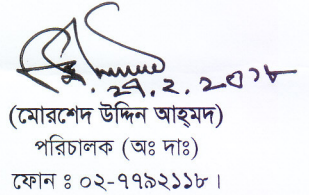 ২৭.২.২০১৮
(মোরশেদ উদ্দিন আহ্‌মদ)
পরিচালক (অঃ দাঃ)
ফোন ঃ ০২-৭৭৯২১১৮।